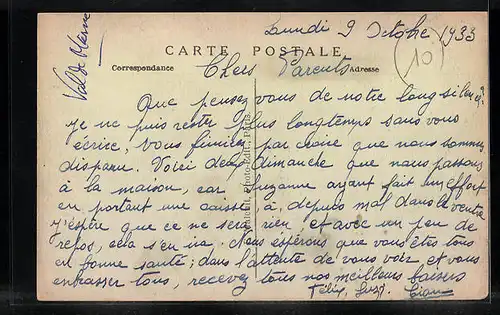 Lundi 9 Octobre 1933
Val de Marne
10
CARTE POSTALE
Correspondance
Adresse
Chers Parents
Que pensez vous de notre long silence?
je ne puis rester plus longtemps sans vous
écrire, vous finirez par croire que nous sommes
disparu. Voici deux dimanche que nous passons
à la maison, car Suzanne ayant fait un effort
en portant une caisse, à, depuis mal dans le ventre
j'éspère que ce ne sera rien et avec un peu de
repos, cela s'en ira. Nous éspérons que vous êtes tous
en bonne santé; dans l'attente de vous voir, et vous
embrasser tous, recevez tous nos meilleurs baisers
Félix, Suz.
Photo-Edit., Paris